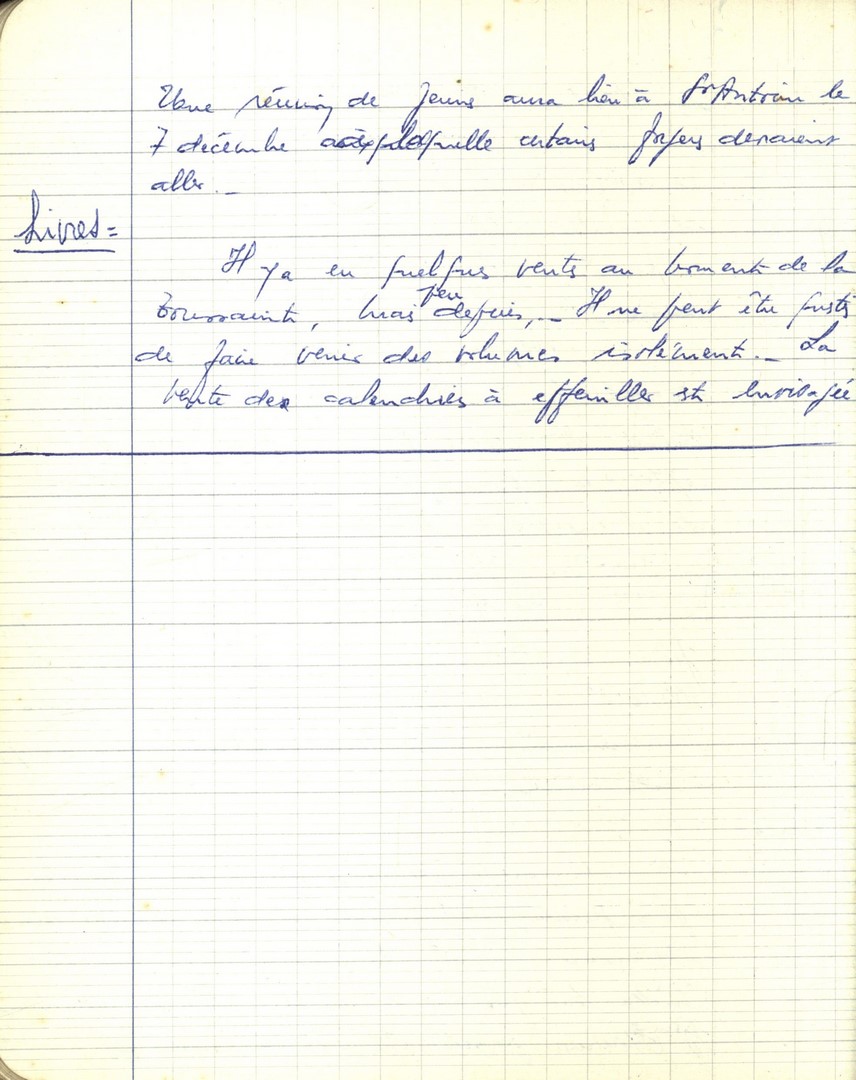 Une réunion de jeunes aura lieu à St Antoine le
7 décembre à laquelle certains foyers devraient
aller._
Livres=
Il y a eu quelques vents au moment de la
peu
Toussaint, mais depuis,_ Il ne peut être question
de faire venir des volumes isolément._ La
vente des calendriers à effeuiller est envisagée